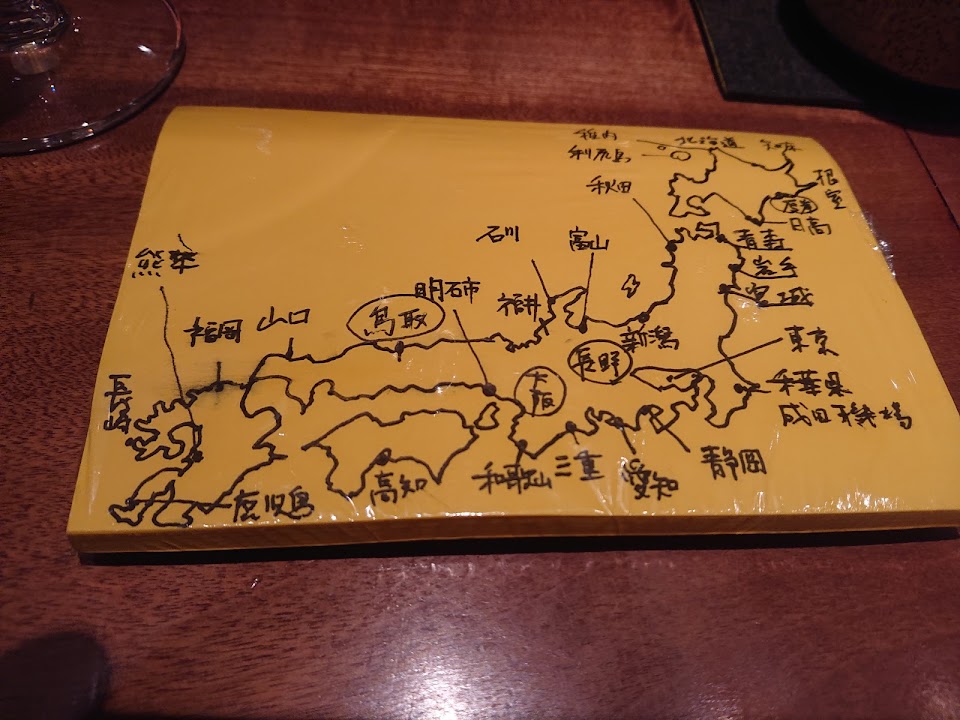 稚内
北海道
知床
利尻島
秋田
根室
日高
石川
富山
青森
岩手
宮城
熊本
明石市
福井
新潟
東京
福岡
山口
鳥取
長野
大阪
千葉県
成田機場
長崎
鹿児島
高知
和歌山
三重
愛知
静岡